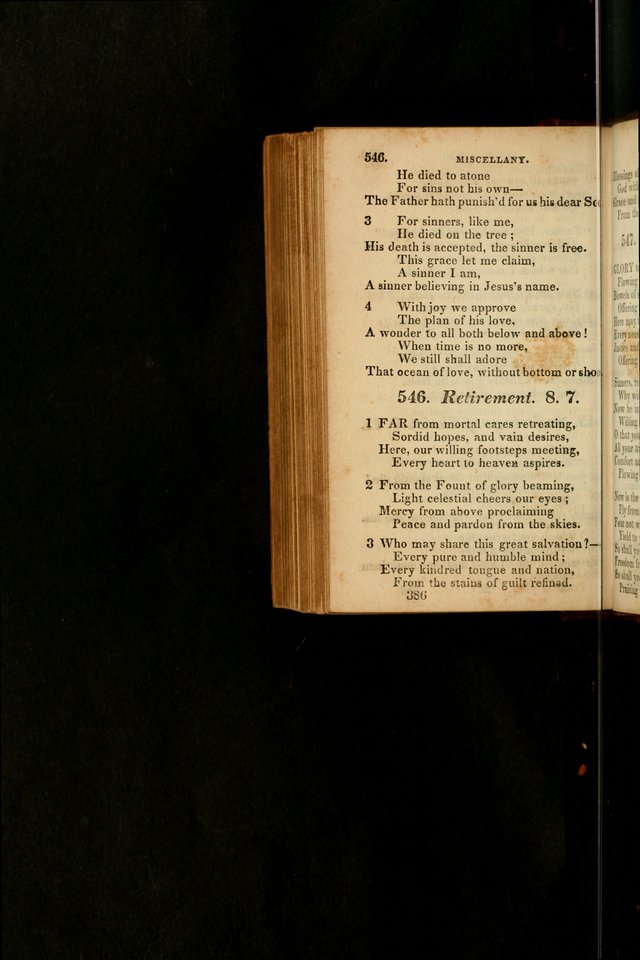 546. MISCELLANY.
He died to atone
For sins not his own—
The Father hath punish'd for us his dear
3 For sinners, like me,
He died on the tree ;
His death is accepted, the sinner is free.
This grace let me claim,
A sinner I am,
A sinner believing in Jesus's name.
4 With joy we approve
The plan of his love,
A wonder to all both below and above !
When time is no more,
We still shall adore
That ocean of love, without bottom or
546. Retirement. 8. 7.
1 FAR from mortal cares retreating,
Sordid hopes, and vain desires,
Here, our willing footsteps meeting,
Every heart to heaven aspires.
2 From the Fount of glory beaming,
Light celestial cheers our eyes ;
Mercy from above proclaiming
Peace and pardon from the skies.
3 Who may share this great salvation ?—
Every pure and humble mind ;
Every kindred tongue and nation,
From the stains of guilt refined.
386
Blessings
God with
Grace and
From
547.
GLORY
Flowing
Bowels of
Offering
Here
Justice and
Offering
Sinners,
Why
Now
Willing
O that you
All your
Comfort
Flowing
Now is the
Fly from
Fear not
Yield to
So shall you
Freedom
So shall you
Praising